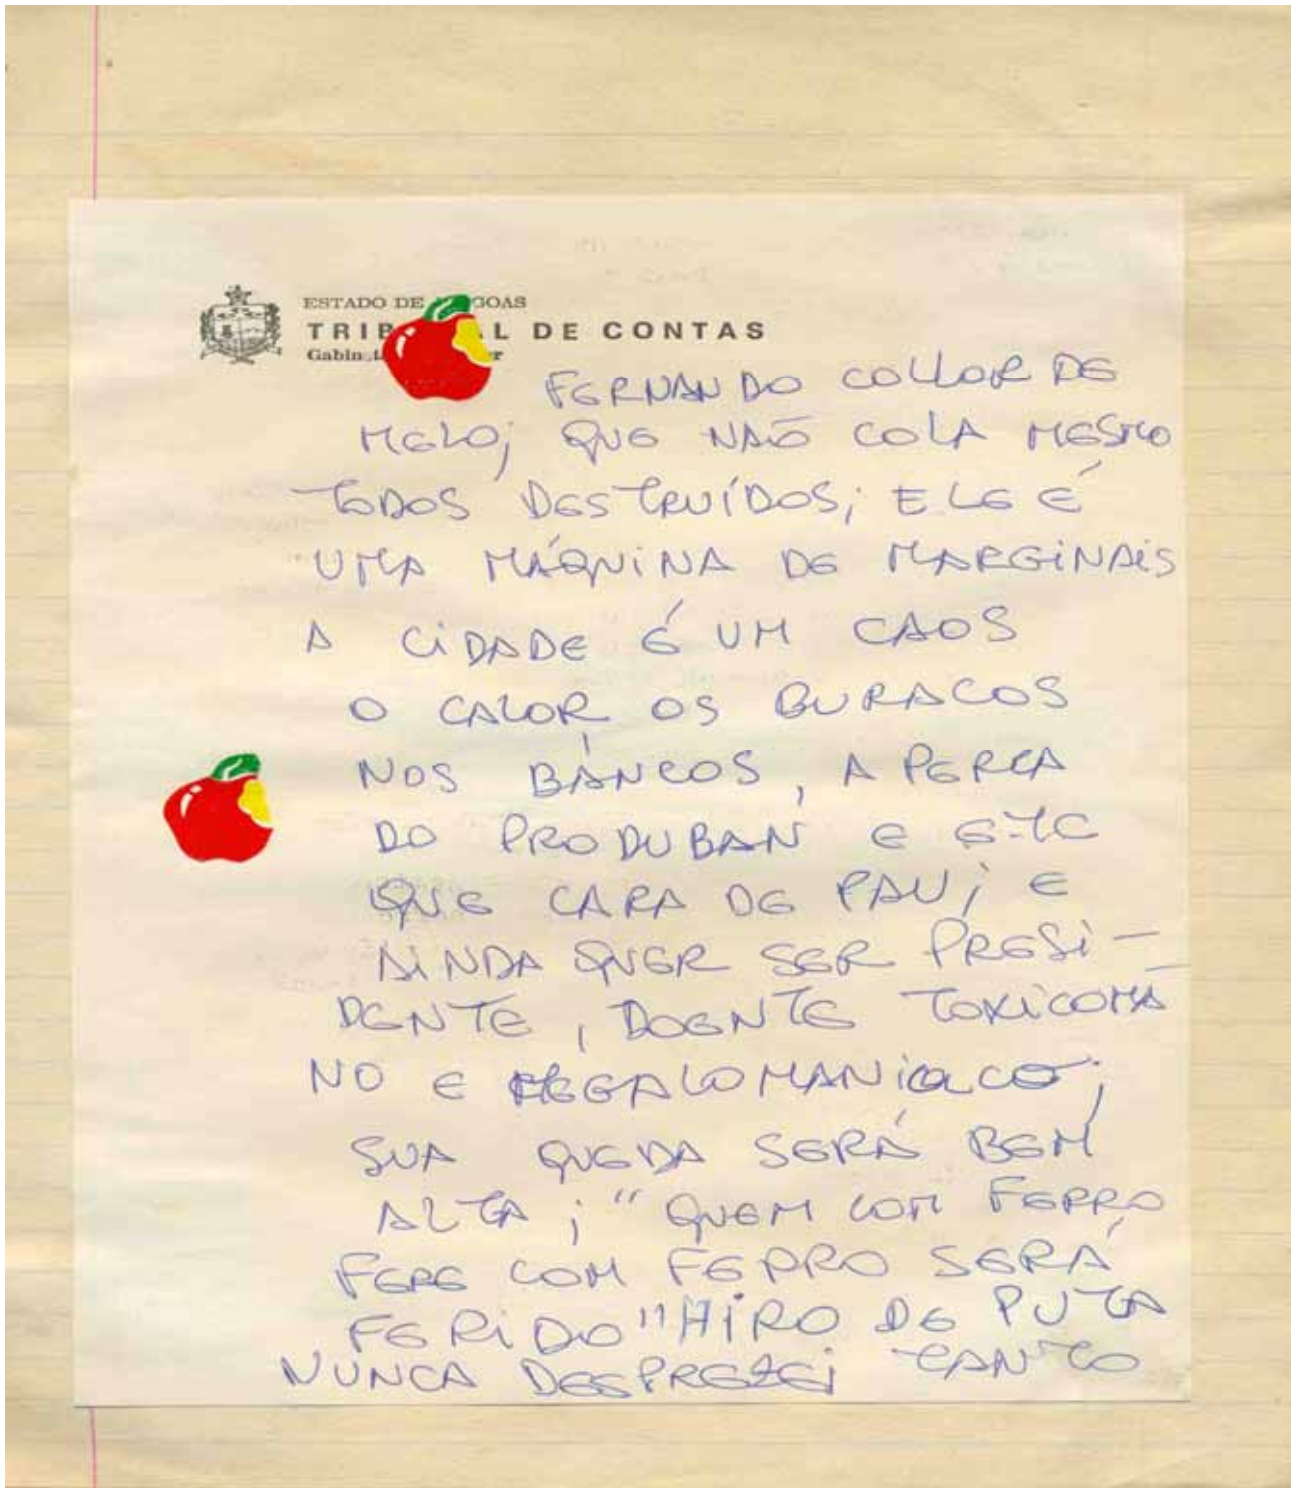 ESTADO DE GOAS
TRIB L DE CONTAS
FERNANDO COLLOR DE
MELO; QUE NÃO COLA MESMO
TODOS DESTRUÍDOS; ELE É
UMA MÁQUINA DE MARGINAIS
A CIDADE É UM CAOS
O CALOR OS BURACOS
NOS BANCOS, A PERCA
DO PRODUBAN E ETC
QUE CARA DE PAU; E
AINDA QUER SER PRESI-
DENTE, DOENTE TOXICOMA
NO E MEGALOMANIACO;
SUA QUEDA SERÁ BEM
ALTA; "QUEM COM FERRO
FERE COM FERRO SERÁ
FERIDO" HIRO DE PUTA
NUNCA DESPREZEI TANTO